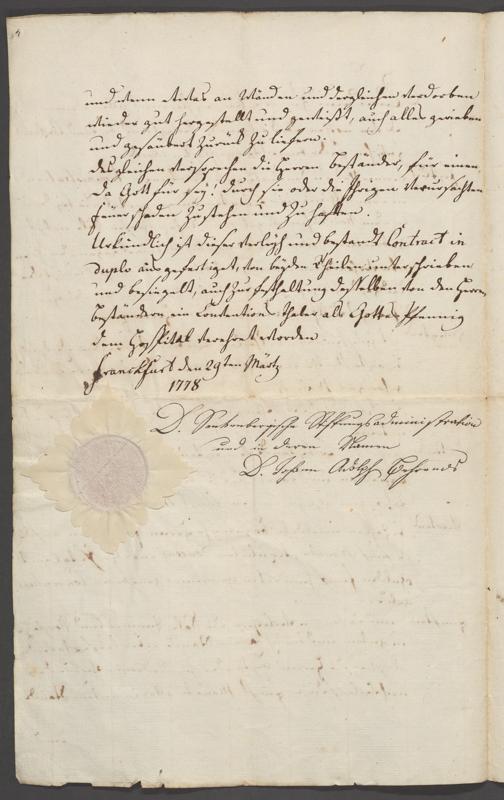 und wenn etwas an Wänden und dergleichen verdorben
wieder gut hergestellt und geweißt, auch alles gerieben
und gesäubert zurück zu liefern.
desgleichen versprechen die Herren Beständer, für einen
da Gott für sey! durch sie oder die Ihrigen verursachten
Feuerschaden zu stehen und zu haften.
Urkundlich ist dieser Verleyh und bestandt Contract in
duplo ausgefertiget, von beyden Theilen unterschrieben
und besiegelt, auch zur Festhaltung desselben von den Herrn
Beständern ein Conventions Thaler als Gottes Pfennig
dem Hospital verehret worden
Franckfurt den 29ten Märtz
1778
D. Senkenbergische Stiftungsadministration
und in deren Namen
D. Johann Adolph Behrends